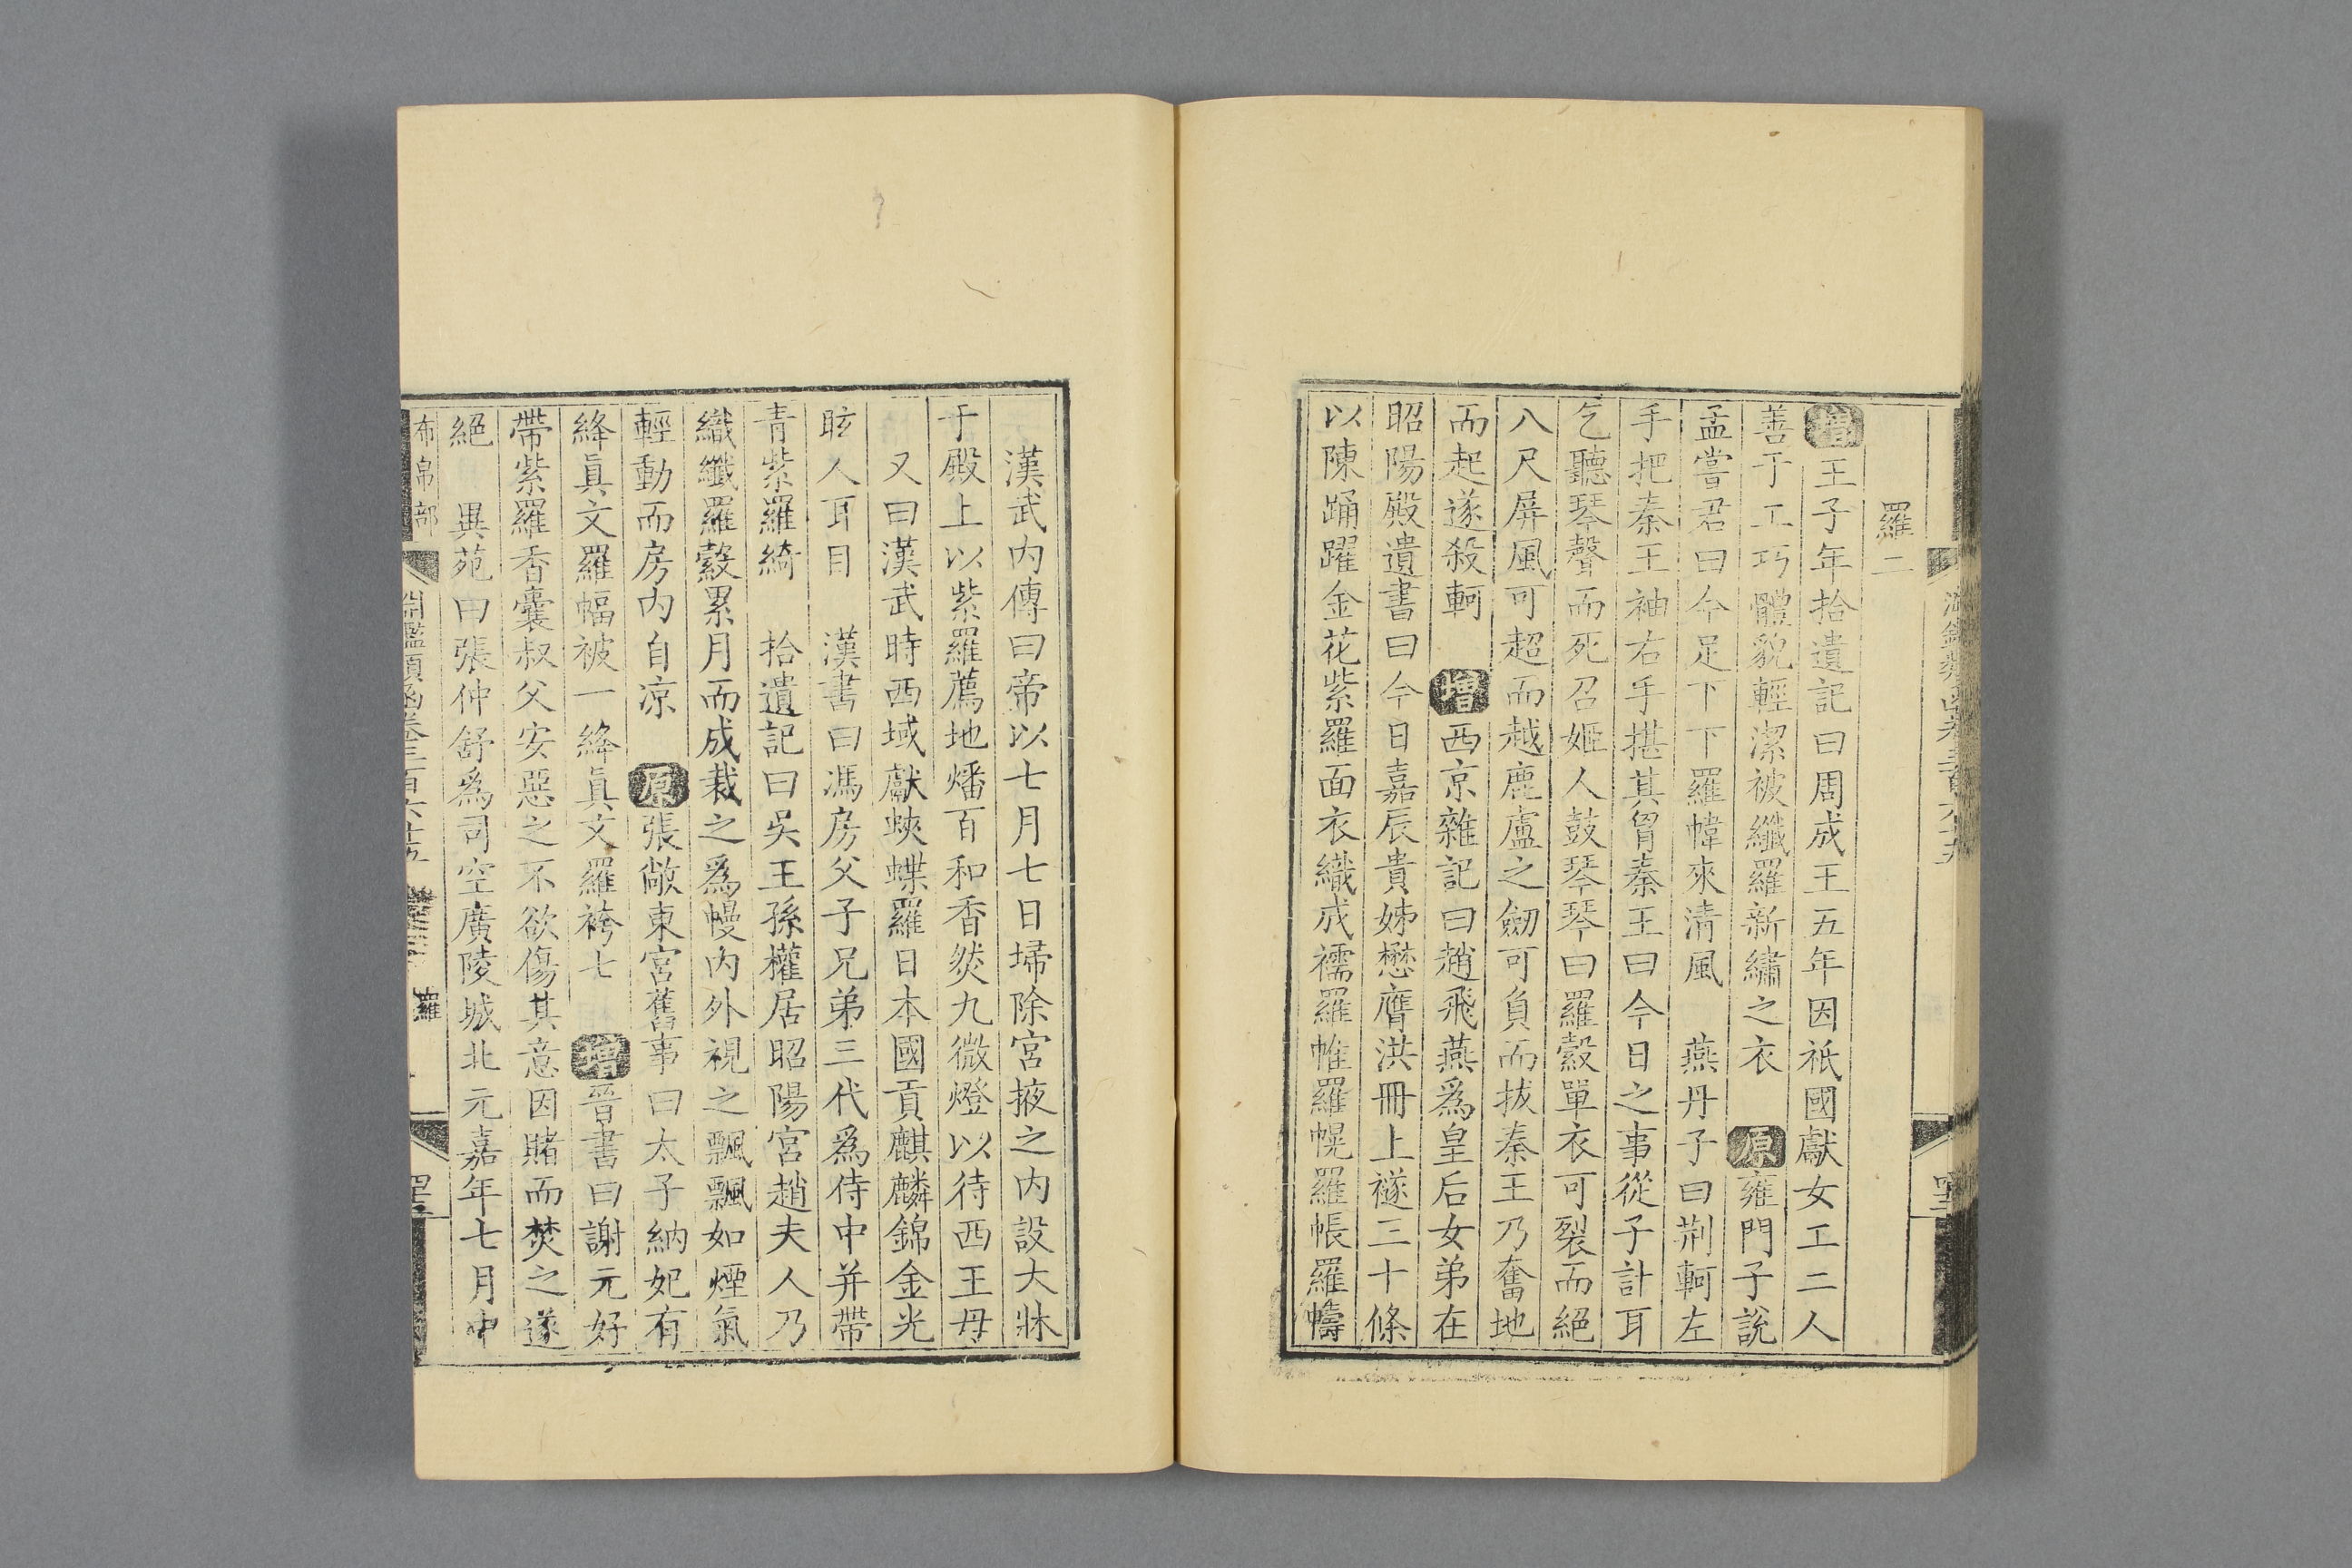 羅二
增王子年拾遺記曰周成王五年因祇國獻女工二人
善于工巧體貌輕潔被纖羅新繡之衣 原雍門子說
孟嘗君曰今足下下羅幃來清風 燕丹子曰荆軻左
手把秦王袖右手揕其胷秦王曰今日之事從子計耳
乞聽琴聲而死召姬人鼓琴琴曰羅縠單衣可裂而絕
八尺屏風可超而越鹿盧之劒可負而拔秦王乃奮地
而起遂殺軻 增西京雜記曰趙飛燕爲皇后女弟在
昭陽殿遺書曰今日嘉辰貴姊懋膺洪冊上襚三十條
以陳踊躍金花紫羅面衣織成襦羅帷羅幌羅帳羅幬
漢武內傳曰帝以七月七日埽除宮掖之內設大牀
于殿上以紫羅薦地燔百和香㷊九微燈以待西王母
又曰漢武時西域獻蛺蝶羅日本國貢麒麟錦金光
眩人耳目 漢書曰馮房父子兄弟三代爲侍中并帶
青紫羅綺 拾遺記曰吳王孫權居昭陽宮趙夫人乃
織纖羅縠累月而成裁之爲幔內外視之飄飄如煙氣
輕動而房內自凉 原張敞東宮舊事曰太子納妃有
絳眞文羅幅被一絳眞文羅袴七 增晉書曰謝元好
帶紫羅香囊叔父安惡之不欲傷其意因賭而焚之遂
絕 異苑曰張仲舒爲司空廣陵城北元嘉年七月中
布帛部 淵鑑類函卷三百六十五 羅